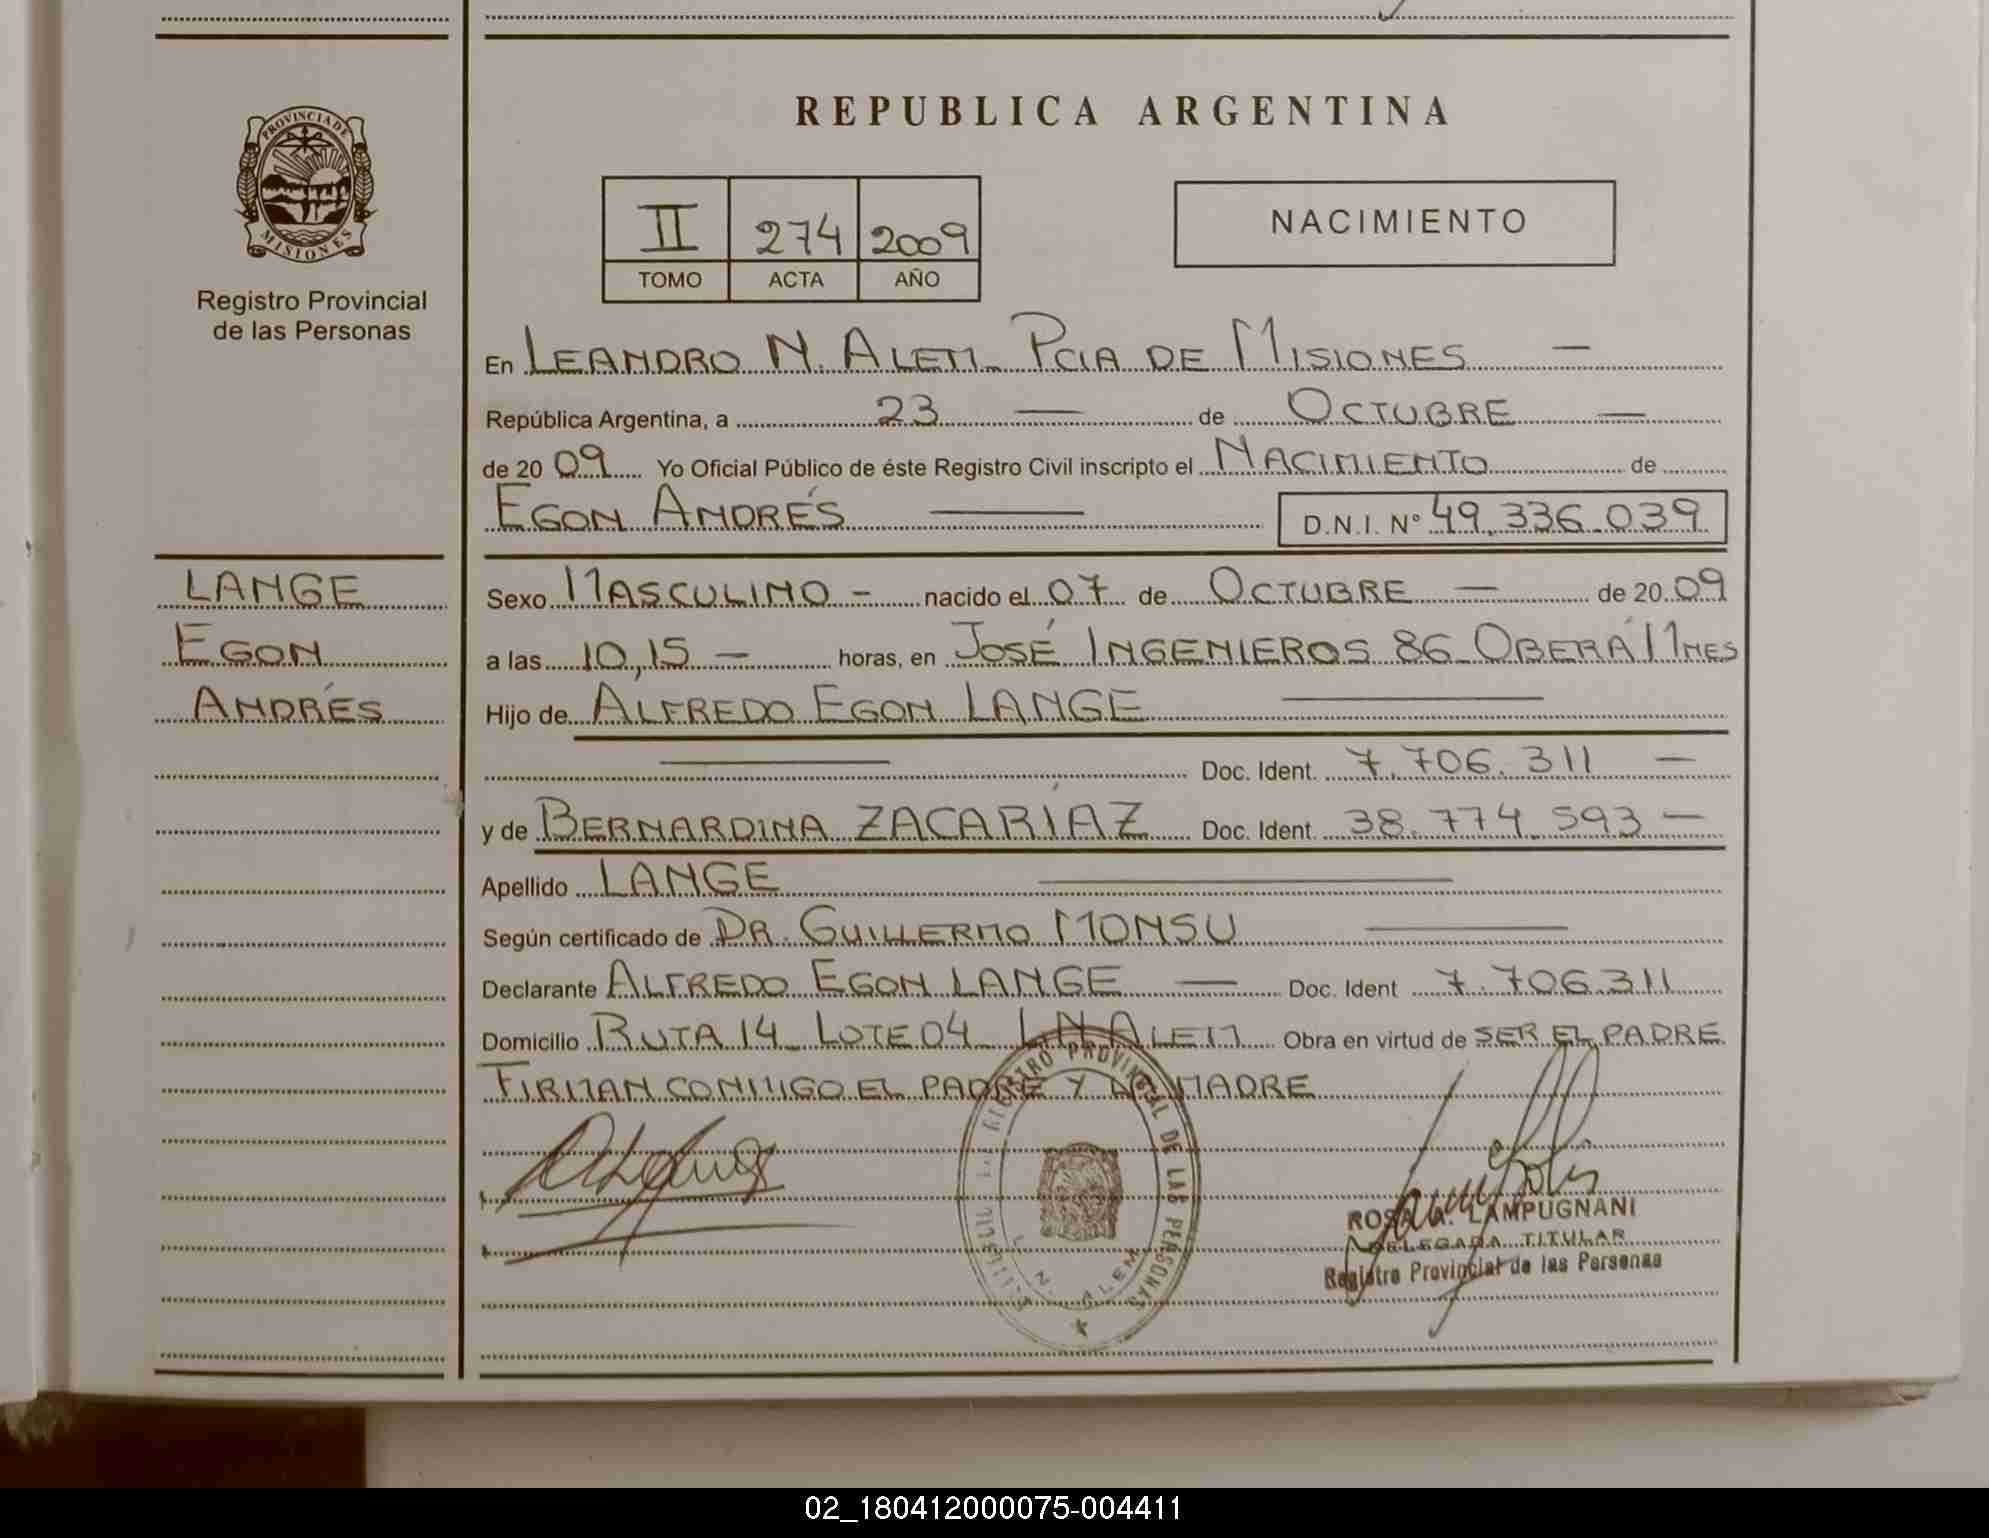 REPUBLICA ARGENTINA
PROVINCIA DE
MISIONES
Registro Provincial
de las Personas
II 274 2009
TOMO ACTA AÑO
NACIMIENTO
En LEANDRO N. ALEM PCIA DE MISIONES —
República Argentina, a 23 — de OCTUBRE —
de 20 09 Yo Oficial Público de éste Registro Civil inscripto el NACIMIENTO de
EGON ANDRÉS — D.N.I. N° 49.336.039
LANGE
EGON
ANDRÉS
Sexo MASCULINO - nacido el 07 de OCTUBRE — de 20 09
a las 10,15 — horas, en JOSÉ INGENIEROS 86 OBERÁ MNES
Hijo de ALFREDO EGON LANGE —
— Doc. Ident. 7.706.311 —
y de BERNARDINA ZACARÍAZ Doc. Ident. 38.774.593 —
Apellido LANGE —
Según certificado de DR. GUILLERMO MONSU —
Declarante ALFREDO EGON LANGE — Doc. Ident 7.706.311
Domicilio RUTA 14 LOTE 04 L N ALEM Obra en virtud de SER EL PADRE
FIRMAN CONMIGO EL PADRE Y LA MADRE
REGISTRO PROVINCIAL DE LAS PERSONAS
L. N. ALEM
ROSA A. LAMPUGNANI
DELEGADA TITULAR
Registro Provincial de las Personas
02_180412000075-004411